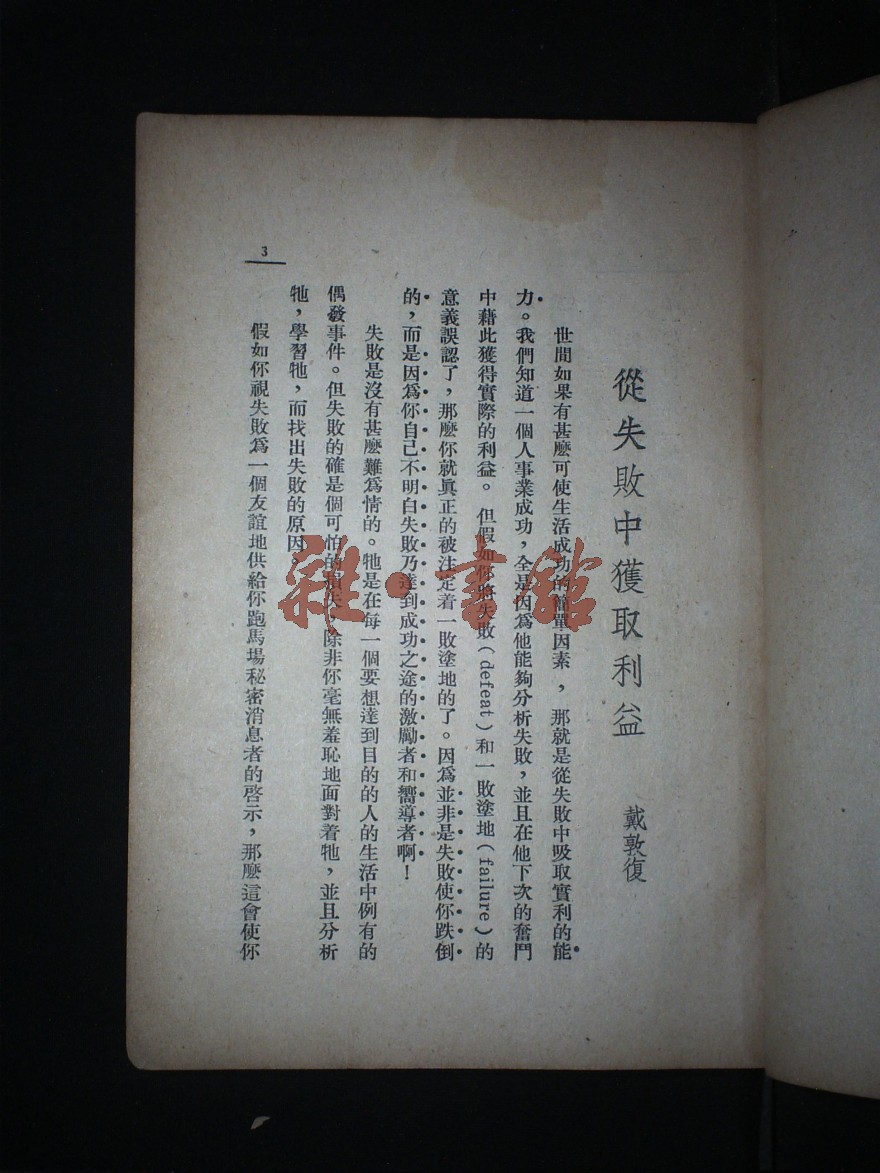 從失敗中獲取利益
戴敦復
世間如果有甚麽可使生活成功的簡單因素，那就是從失敗中吸取實利的能
力。我們知道一個人事業成功，全是因爲他能夠分析失敗，並且在他下次的奮鬥
中藉此獲得實際的利益。但假如你將失敗（defeat）和一敗塗地（failure）的
意義誤認了，那麽你就眞正的被注定着一敗塗地的了。因爲並非是失敗使你跌倒
的，而是因爲你自己不明白失敗乃達到成功之途的激勵者和嚮導者啊！
失敗是沒有甚麽難爲情的。牠是在每一個要想達到目的的人的生活中例有的
偶發事件。但失敗的確是個可怕的損失，除非你毫無羞恥地面對着牠，並且分析
牠，學習牠，而找出失敗的原因。
假如你視失敗爲一個友誼地供給你跑馬場秘密消息者的啓示，那麽這會使你
3
雜·書館